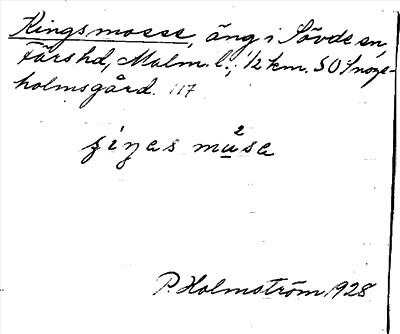 Kingsmosse, äng i Sövde sn,
Färs hd, Malm. l., 1/2 km. SO Snoge-
holmsgård. 117
2
P. Holmström 1928